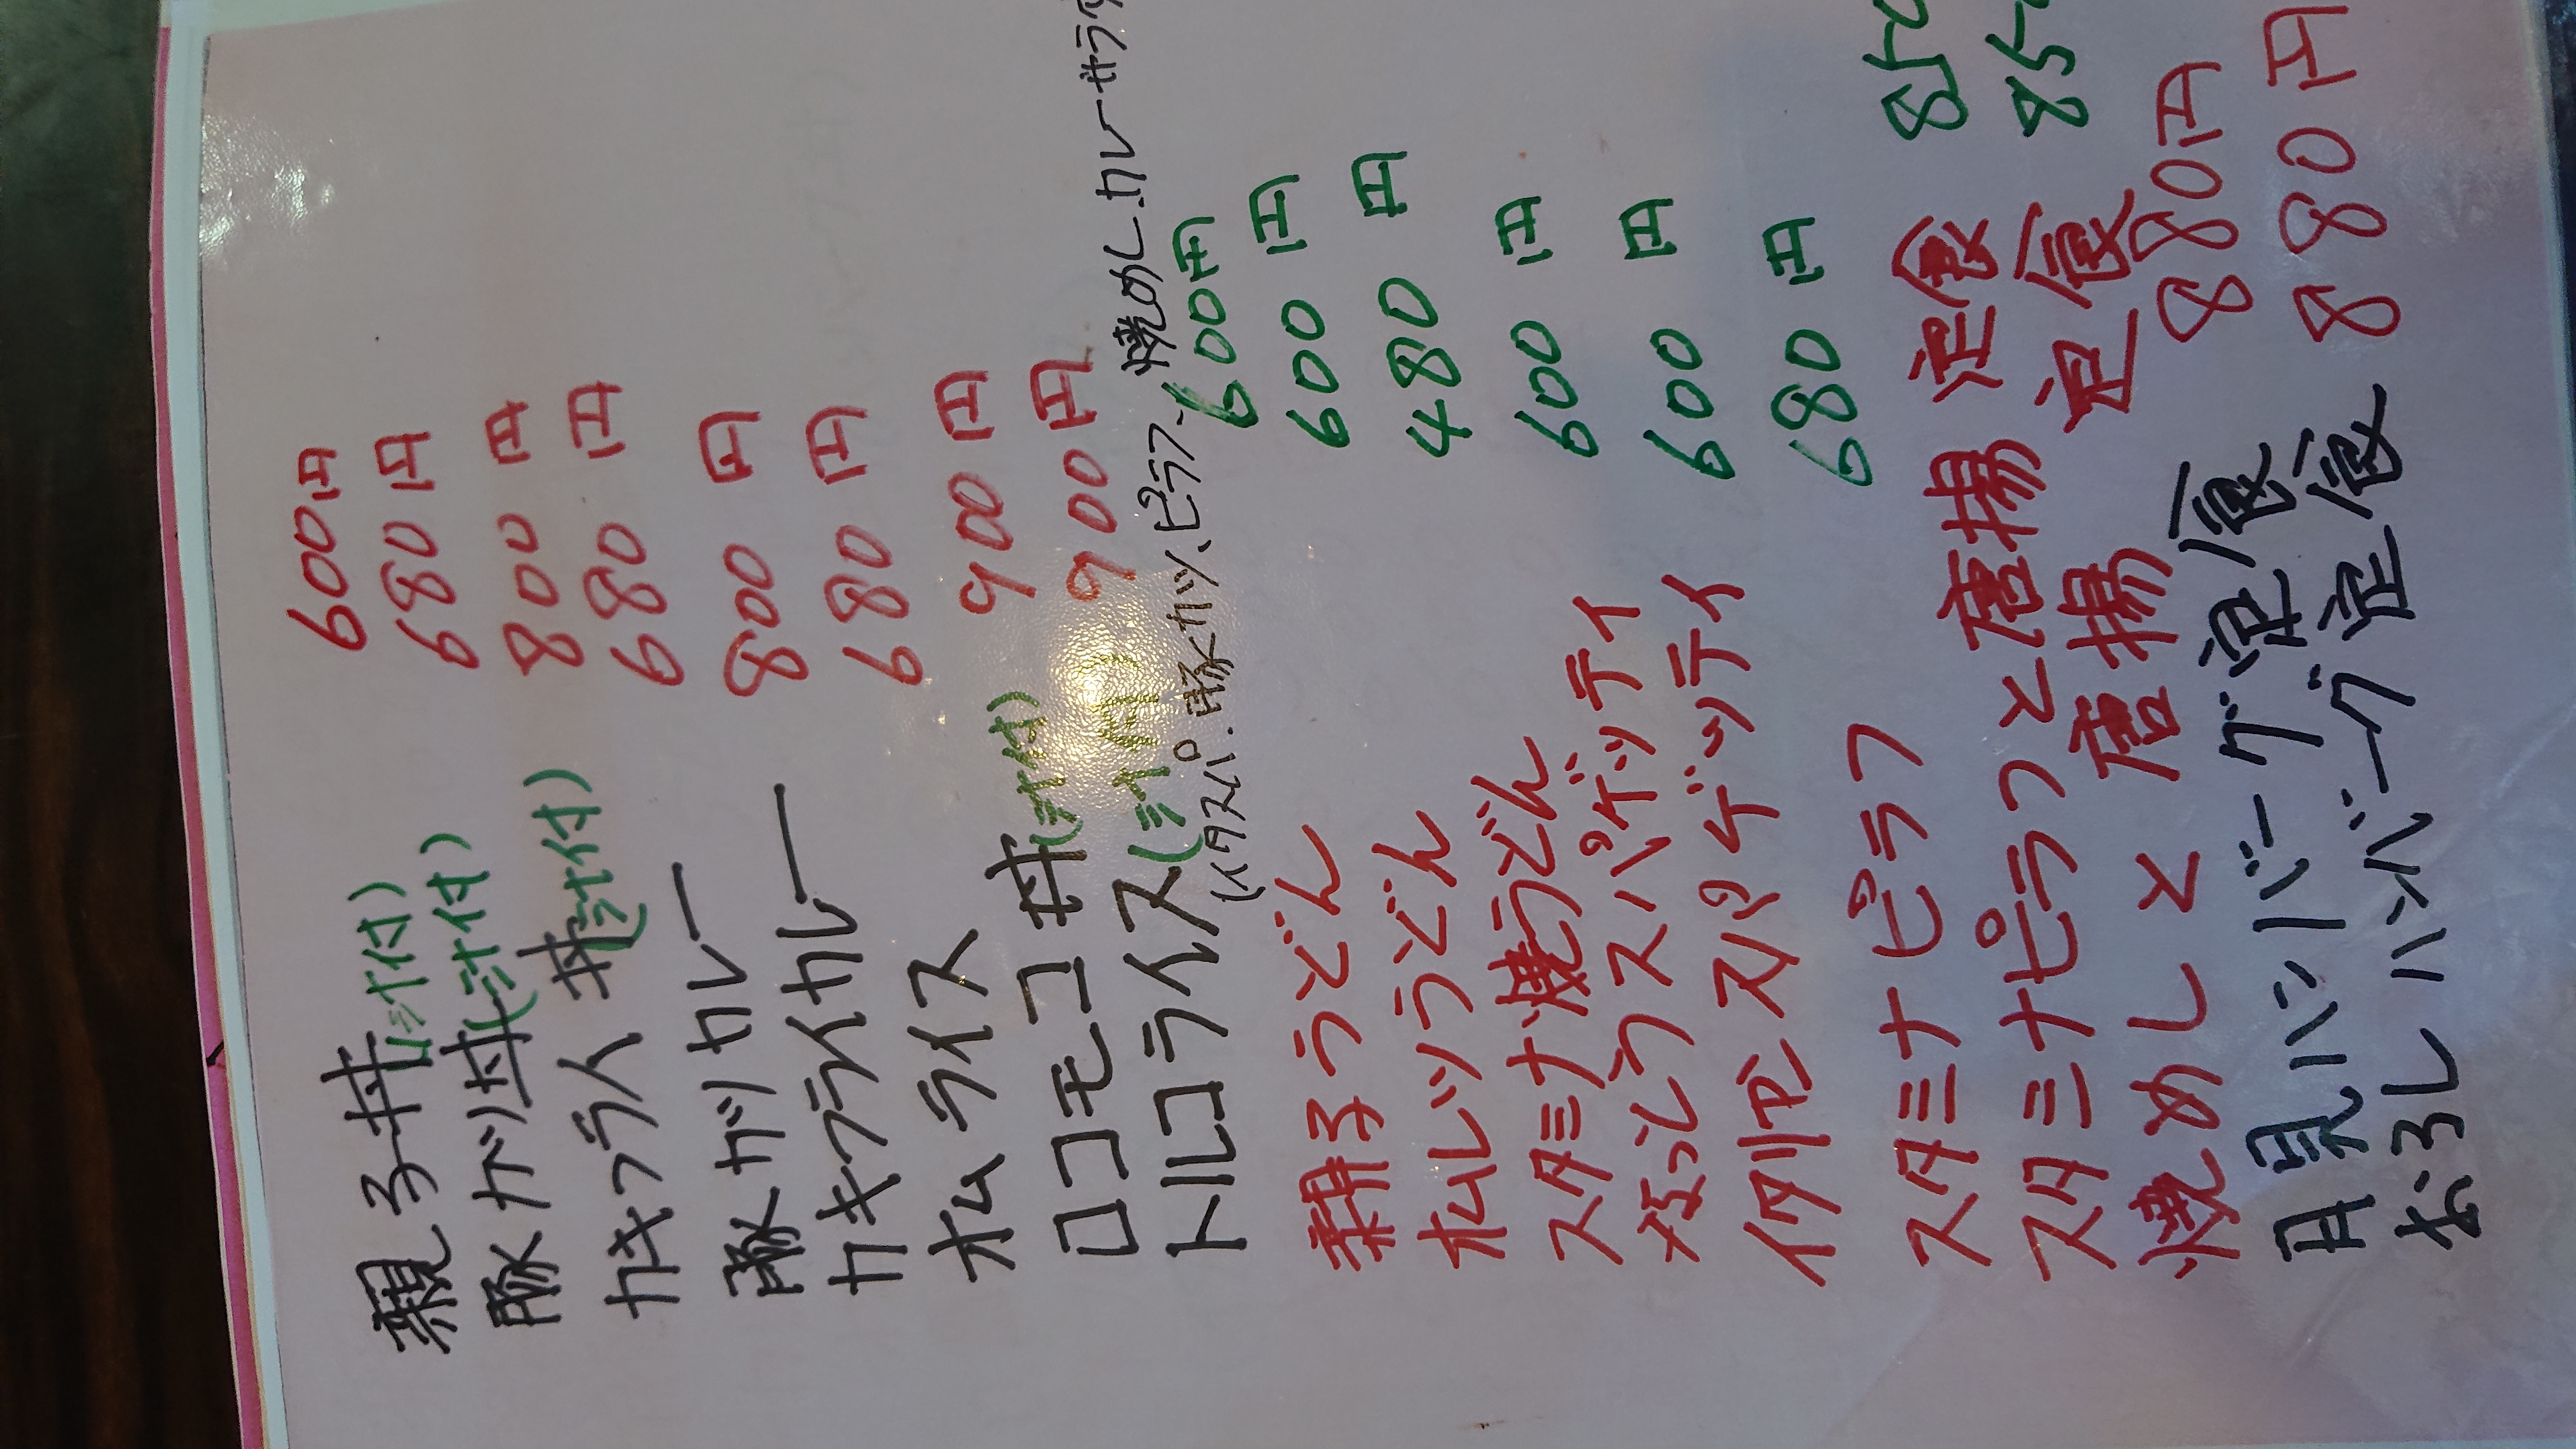 親子丼(汁付) 600円
豚カツ丼(汁付) 680円
カキフライ丼(汁付) 800円
豚カツカレー 680円
カキフライカレー 800円
オムライス 680円
ロコモコ丼(汁付) 900円
トルコライス(汁付) 900円
(イタスパ.豚カツ、ピラフ、焼めし.カレーサラ
親子うどん 600円
オムレツうどん 600円
スタミナ焼うどん 480円
なっとうスパゲッティ 600円
イタリアンスパゲッティ 600円
スタミナピラフ 680円
スタミナピラフと唐揚定食 850
焼めしと唐揚定食 85
月見ハンバーグ定食 880円
おろしハンバーグ定食 880円